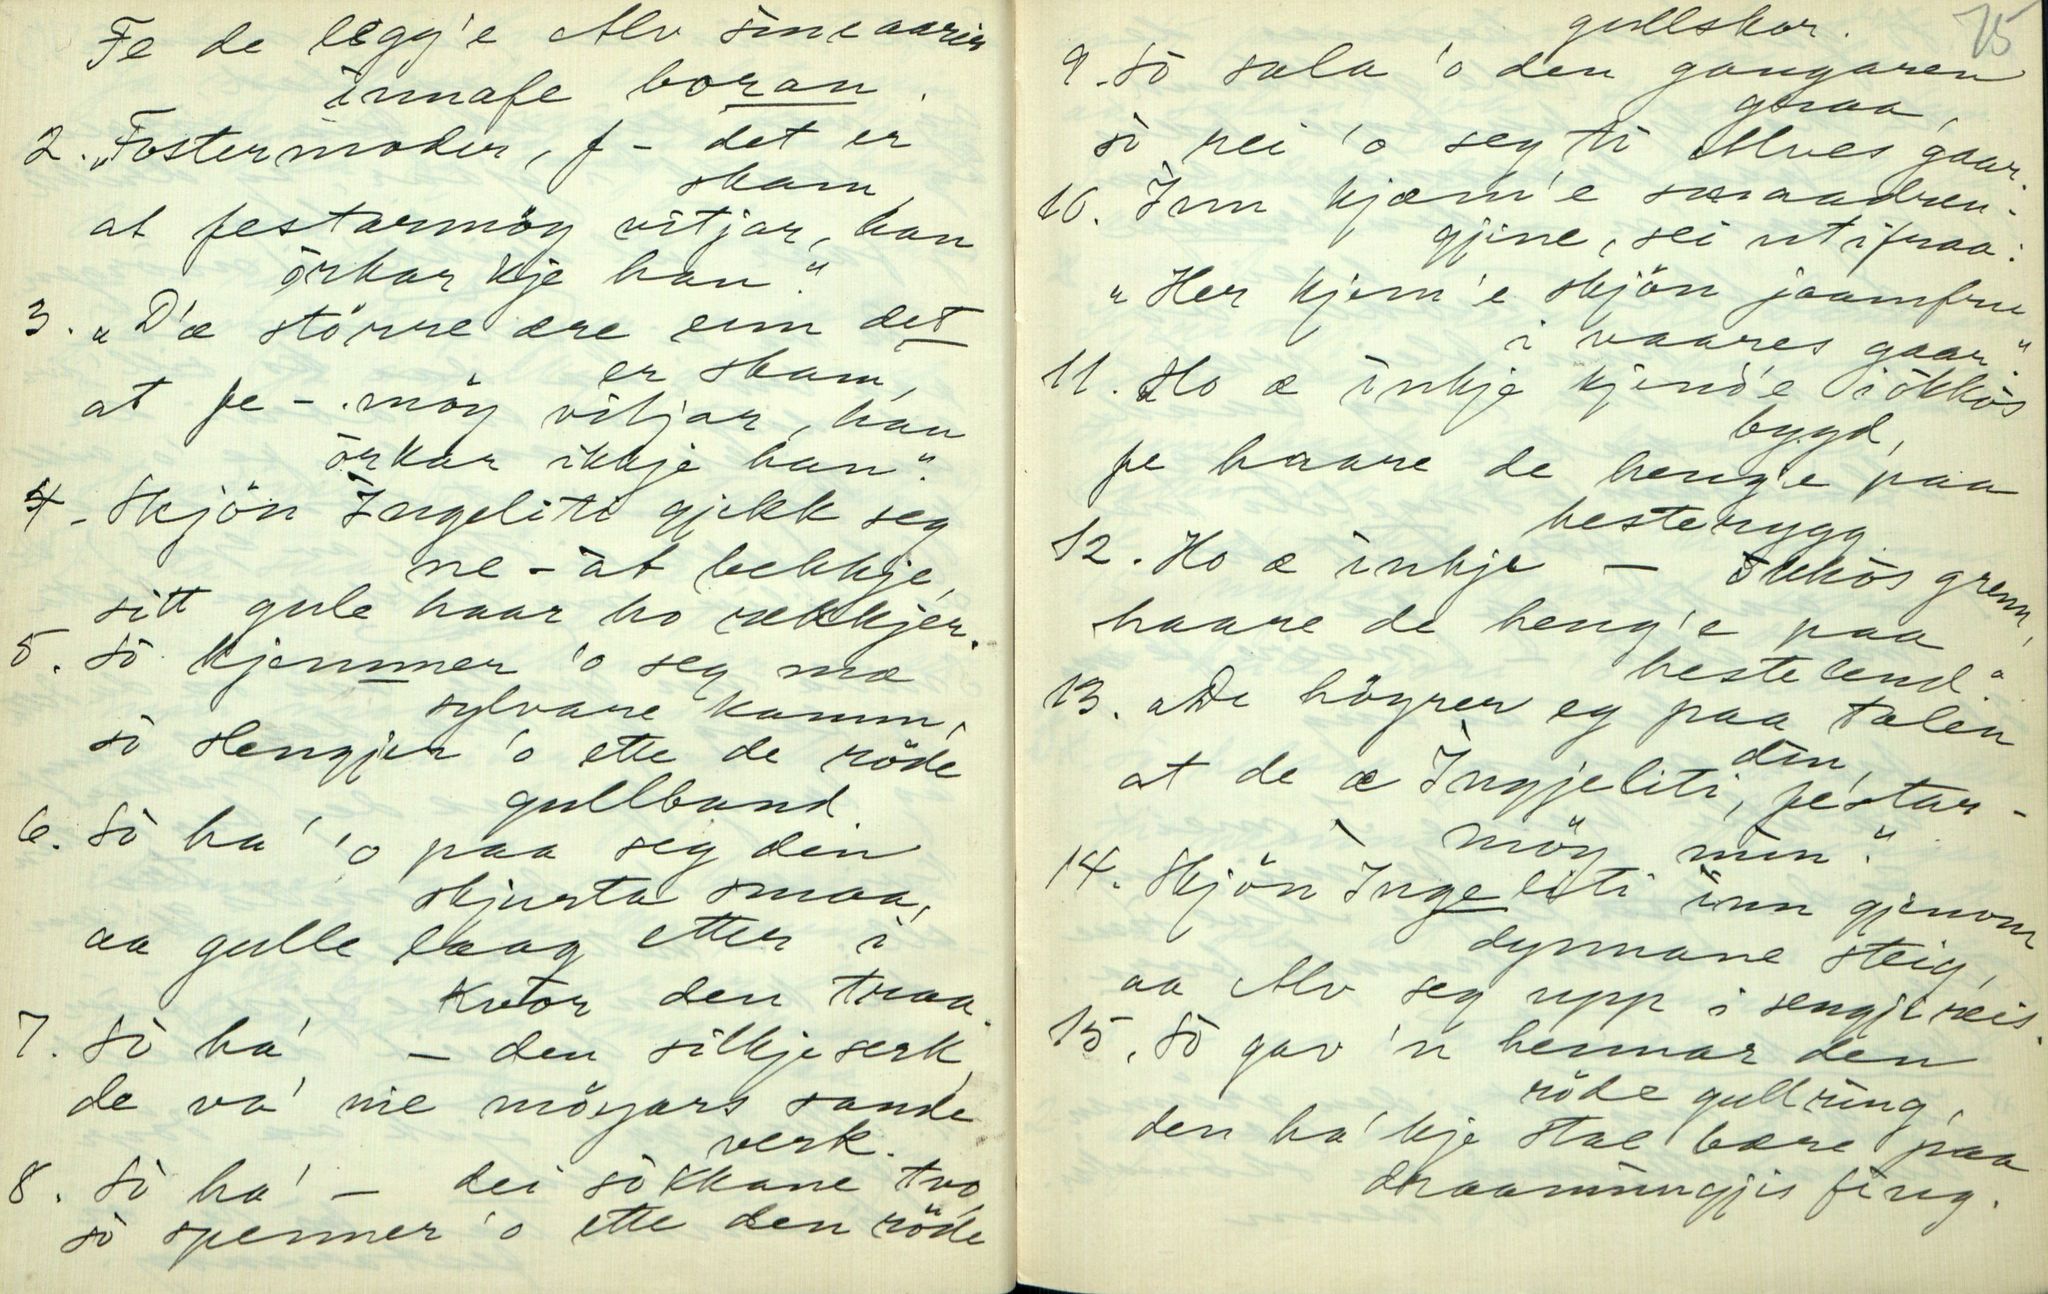 Fe de legg'e Alv sine aarir
innafe boran.
2. „Fostermoder, f – det er
skam,
at festarmöy vitjar, han
örkar 'kje han."
3. „D'æ större ære enn det
er skam,
at fe – möy vitjar, han
örkar ikkje han."
4. Skjön Ingeliti gjekk seg
ne – åt bekkje,
sitt gule haar ho rekkjer.
5. Så kjemmer 'o seg mæ
sylvare kamm,
så slengjer 'o ette de röde
gullband
6. Så ha' 'o paa seg din
skjurta smaa,
aa gulle laag etter i
kvor den traa.
7. Så ha' – den silkjeserk,
de va' nie möyars vande
verk.
8. Så ha' – dei såkkane tvo,
så spenner 'o ette den röde
75
gullskor.
9. Så sala 'o den gangaren
graa,
så rei 'o seg ti Alves gaar.
10. Inn kjæm'e smaadren-
gjine, sei utifraa:
„Her kjem'e skjön jaamfru
i vaares gaar."
11. Ho æ inkje kjend'e i åkkås
bygd,
fe haare de heng'e paa
hesterygg.
12. Ho æ inkje – åkkås grenn,
haare de heng'e paa
hestelend."
13. „De höyrer eg paa talen
din,
at de æ Ingjeliti, festar-
möy min."
14. Skjön Ingeliti inn gjenom
dynnane steig,
aa Alv seg upp i sengji reis.
15. Så gav 'n hennar den
röde gullring,
den ha' kje stae bære paa
draamingjis fing.